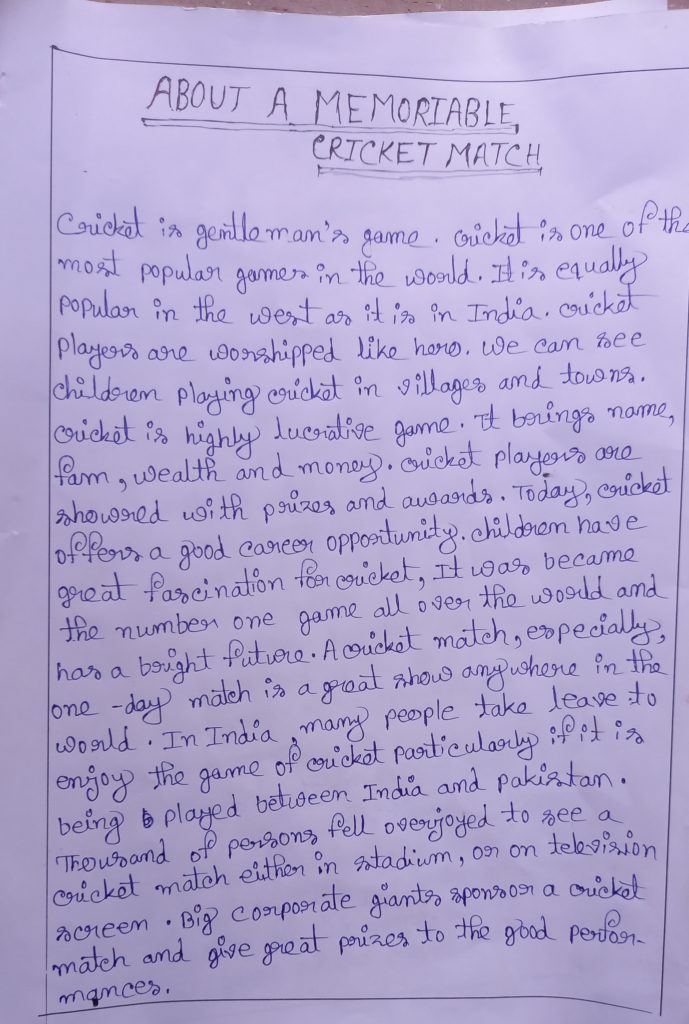 ABOUT A MEMORIABLE
CRICKET MATCH
Cricket is gentleman's game. cricket is one of the
most popular games in the world. It is equally
popular in the west as it is in India. cricket
players are worshipped like hero. we can see
children playing cricket in villages and towns.
cricket is highly lucrative game. It brings name,
fam, wealth and money. cricket players are
showred with prizes and awards. Today, cricket
offers a good career opportunity. children have
great fascination for cricket, It was became
the number one game all over the world and
has a bright future. A cricket match, especially,
one-day match is a great show anywhere in the
world. In India, many people take leave to
enjoy the game of cricket particularly if it is
being played between India and pakistan.
Thousand of persons fell overjoyed to see a
cricket match either in stadium, or on television
screen. Big corporate giants sponsor a cricket
match and give great prizes to the good perfor-
mances.